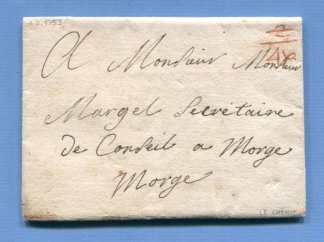 1.2.1753
2
A Monsieur Monsieur
Margel Secretaire
de Conseil a Morge
Morge
LE CHENIT